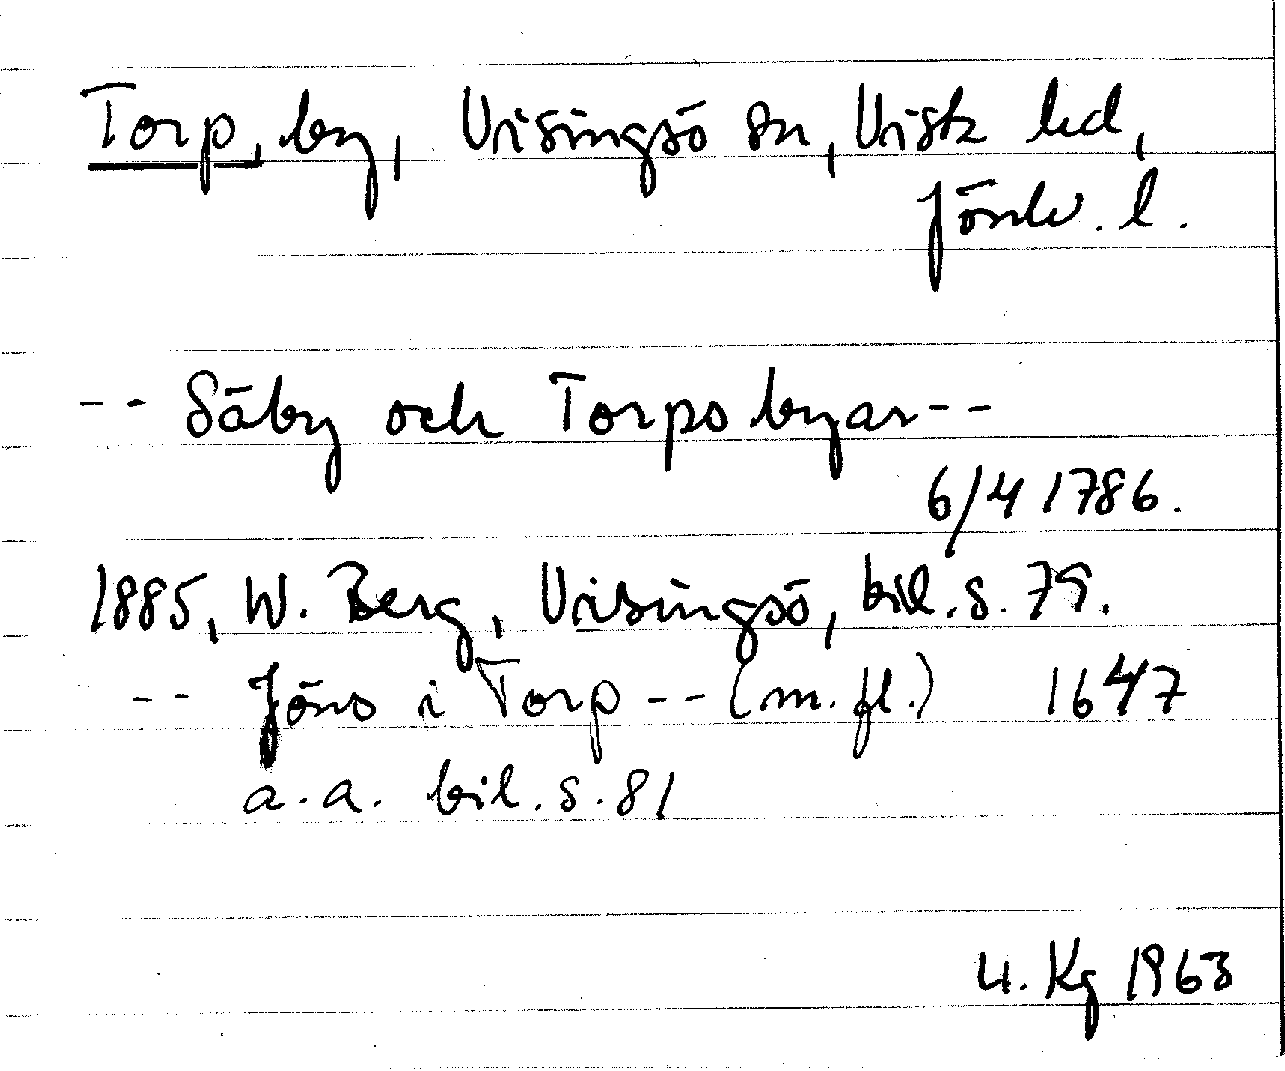 Torp, by, Visingsö sn, Vista hd,
Jönk. l.
-- Säby och Torps byar --
6/4 1786.
1885, W. Berg, Visingsö, bil. s. 79.
-- Jöns i Torp -- (m. fl.) 1647
a. a. bil. s. 81
U. Kg 1963